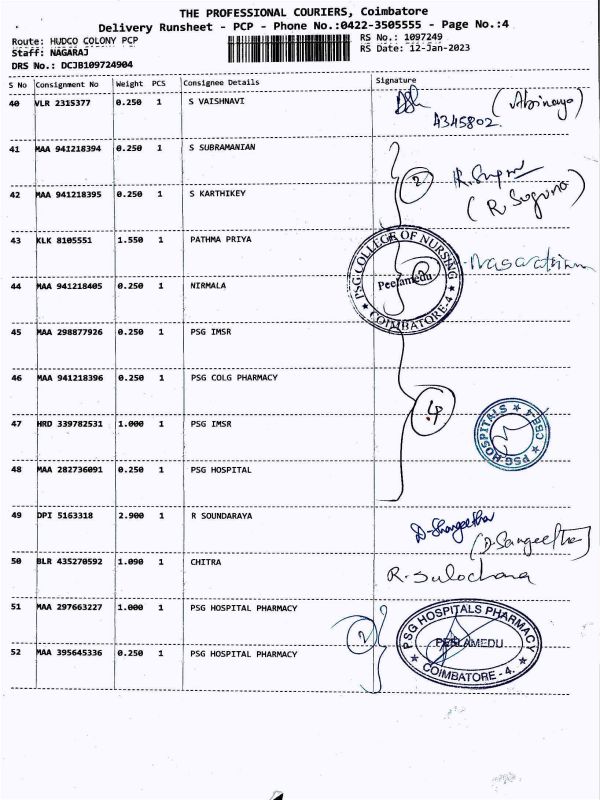 THE PROFESSIONAL COURIERS, Coimbatore
Delivery Runsheet - PCP - Phone No.:0422-3505555 - Page No.:4
Route: HUDCO COLONY PCP
RS No.: 1097249
Staff: NAGARAJ
RS Date: 12-Jan-2023
DRS No.: DCJB109724904
S No Consignment No Weight PCS Consignee Details Signature
40 VLR 2315377 0.250 1 S VAISHNAVI
(Abinaya)
A345802
41 MAA 941218394 0.250 1 S SUBRAMANIAN
2
42 MAA 941218395 0.250 1 S KARTHIKEY
(R Suguna)
43 KLK 8105551 1.550 1 PATHMA PRIYA
PSG COLLEGE OF NURSING
Peelamedu
COIMBATORE-4
2
44 MAA 941218405 0.250 1 NIRMALA
45 MAA 298877926 0.250 1 PSG IMSR
46 MAA 941218396 0.250 1 PSG COLG PHARMACY
4
47 HRD 339782531 1.000 1 PSG IMSR
PSG HOSPITALS
CBE-4
48 MAA 282736091 0.250 1 PSG HOSPITAL
49 DPI 5163318 2.900 1 R SOUNDARAYA
D-Shangeetha
(D.Sangeetha)
50 BLR 435270592 1.090 1 CHITRA
R. Sulochana
51 MAA 297663227 1.000 1 PSG HOSPITAL PHARMACY
2
PSG HOSPITALS PHARMACY
PEELAMEDU
COIMBATORE - 4.
52 MAA 395645336 0.250 1 PSG HOSPITAL PHARMACY